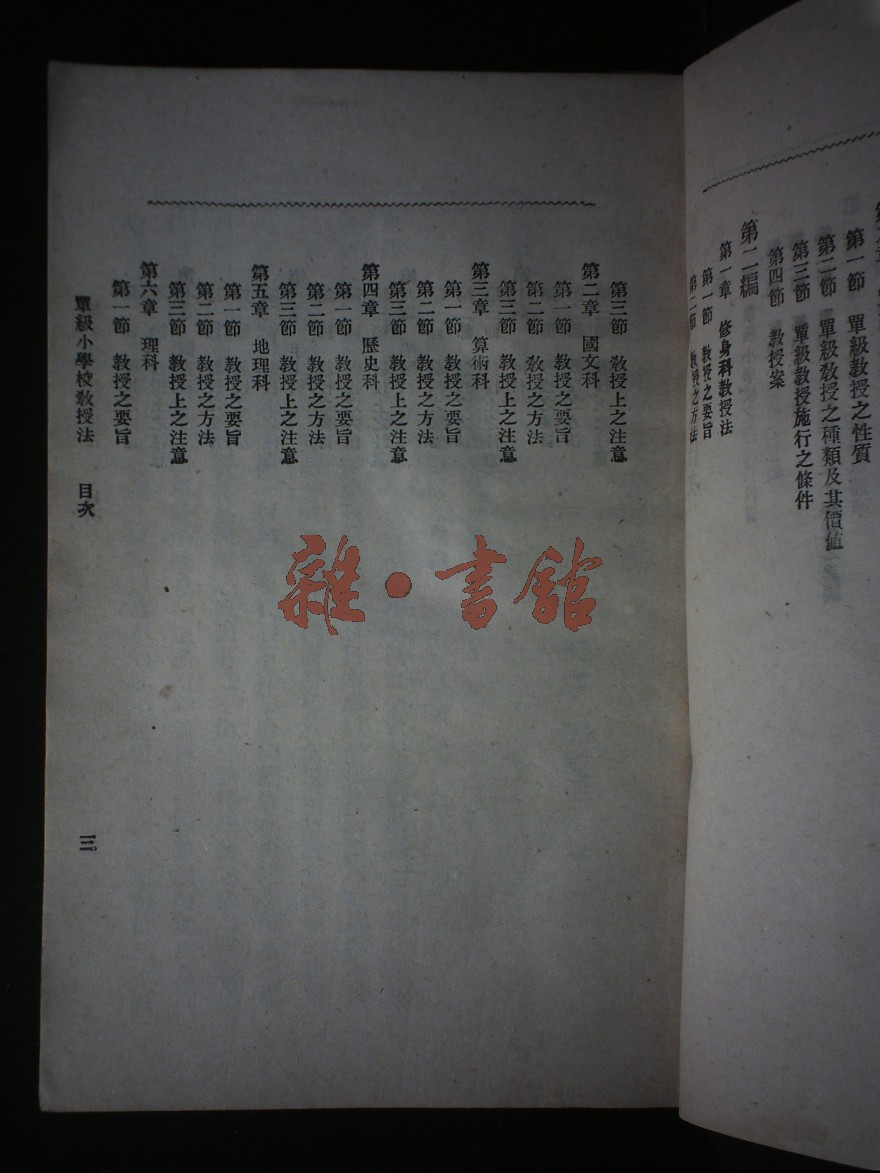 第一節　單級教授之性質
第二節　單級教授之種類及其價值
第三節　單級教授施行之條件
第四節　教授案
第二編
第一章　修身科教授法
第一節　教授之要旨
第二節　教授之方法
第三節　教授上之注意
第二章　國文科
第一節　教授之要旨
第二節　教授之方法
第三節　教授上之注意
第三章　算術科
第一節　教授之要旨
第二節　教授之方法
第三節　教授上之注意
第四章　歷史科
第一節　教授之要旨
第二節　教授之方法
第三節　教授上之注意
第五章　地理科
第一節　教授之要旨
第二節　教授之方法
第三節　教授上之注意
第六章　理科
第一節　教授之要旨
單級小學校教授法　目次　三
雜·書館